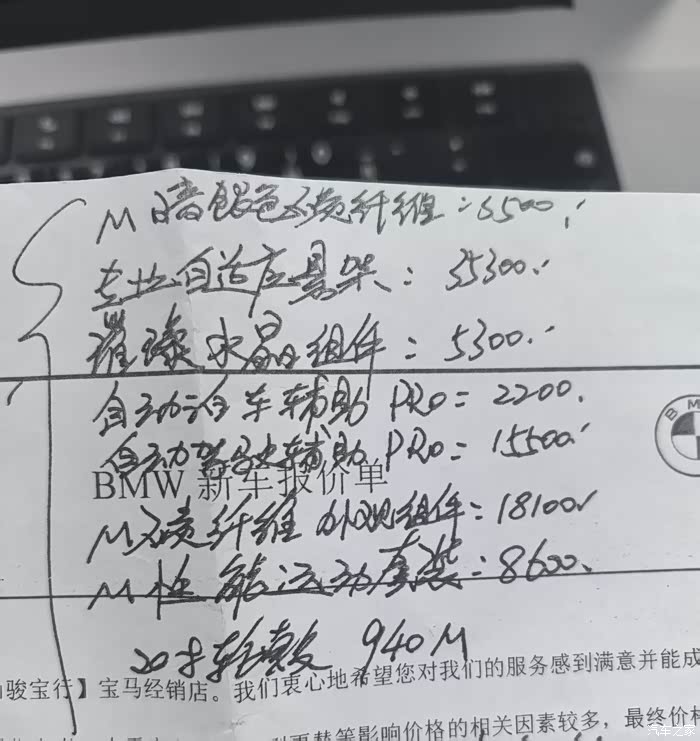 M暗银色碳纤维:6500.
专业自适应悬架:35300.
璀璨水晶组件:5300.
自动泊车辅助 PRO=2200.
自动驾驶辅助 PRO=15500.
BMW 新车报价单
M碳纤维 外观组件:18100
M性能运动套装:8600.
20寸轮毂 940M
骏宝行】宝马经销店。我们衷心地希望您对我们的服务感到满意并能成
更替等影响价格的相关因素较多，最终价格
B M
汽车之家